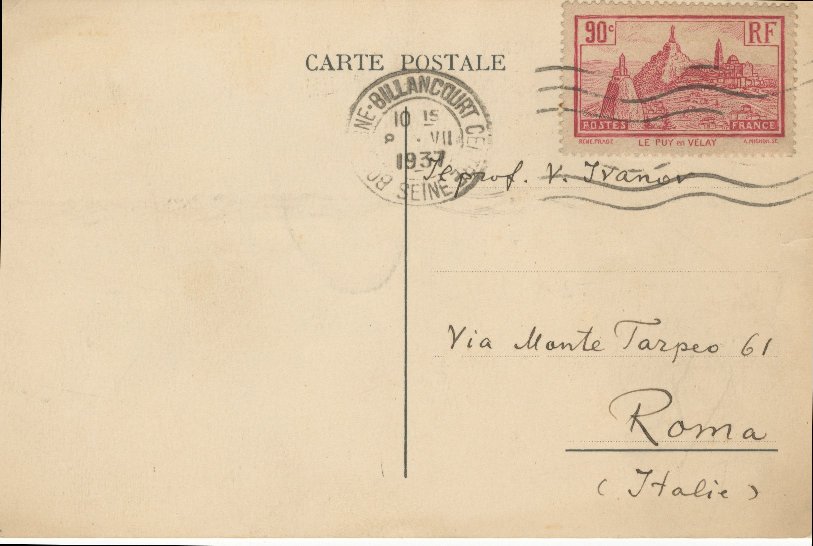 CARTE POSTALE
90c RF
POSTES FRANCE
LE PUY en VELAY
BILLANCOURT
10 15
VII
1937
SEINE
Il prof. V. Ivanov
Via Monte Tarpeo 61
Roma
(Italie)